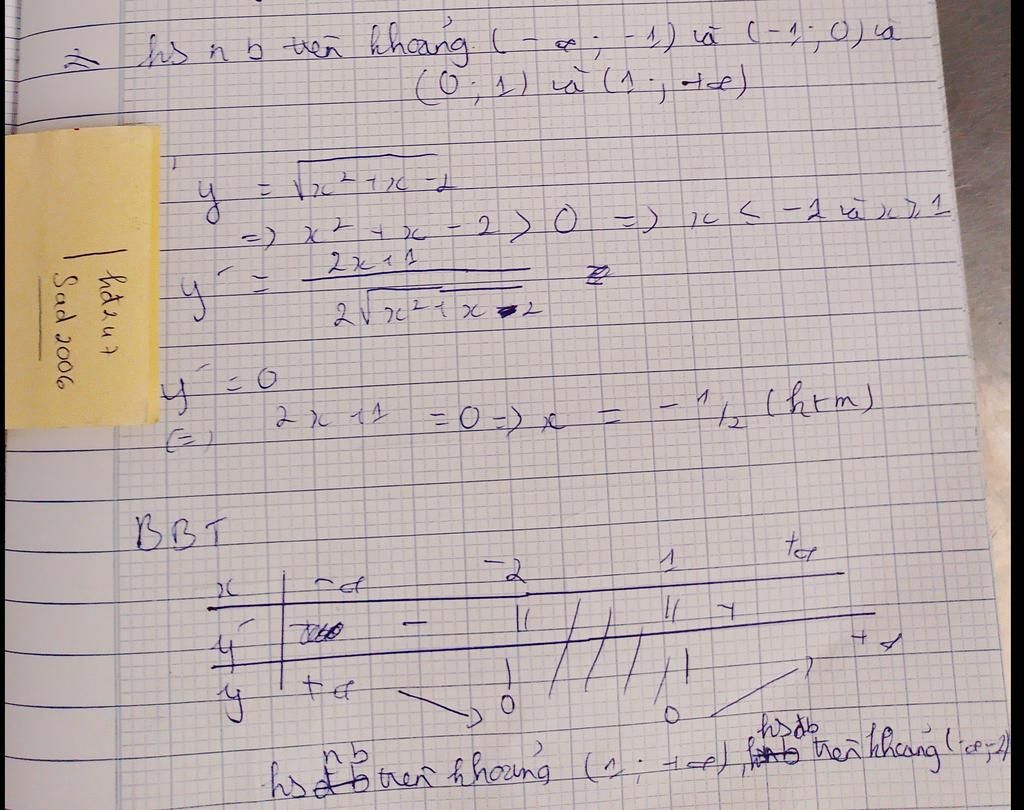 => hs n b trên khoảng (-∞; -1) và (-1; 0) và
(0; 1) và (1; +∞)
y = √x² + x - 2
=> x² + x - 2 > 0 => x < -2 và x > 1
y' = 2x+1 / 2√x² + x - 2
y' = 0
(=) 2x + 1 = 0 => x = -1/2 (h t m)
BBT
x -∞ -2 1 +∞
y' - || || +
y +∞ 0 0 +∞
hs nb trên khoảng (1; +∞), hs đb trên khoảng (-∞; -2)
Sad 2006